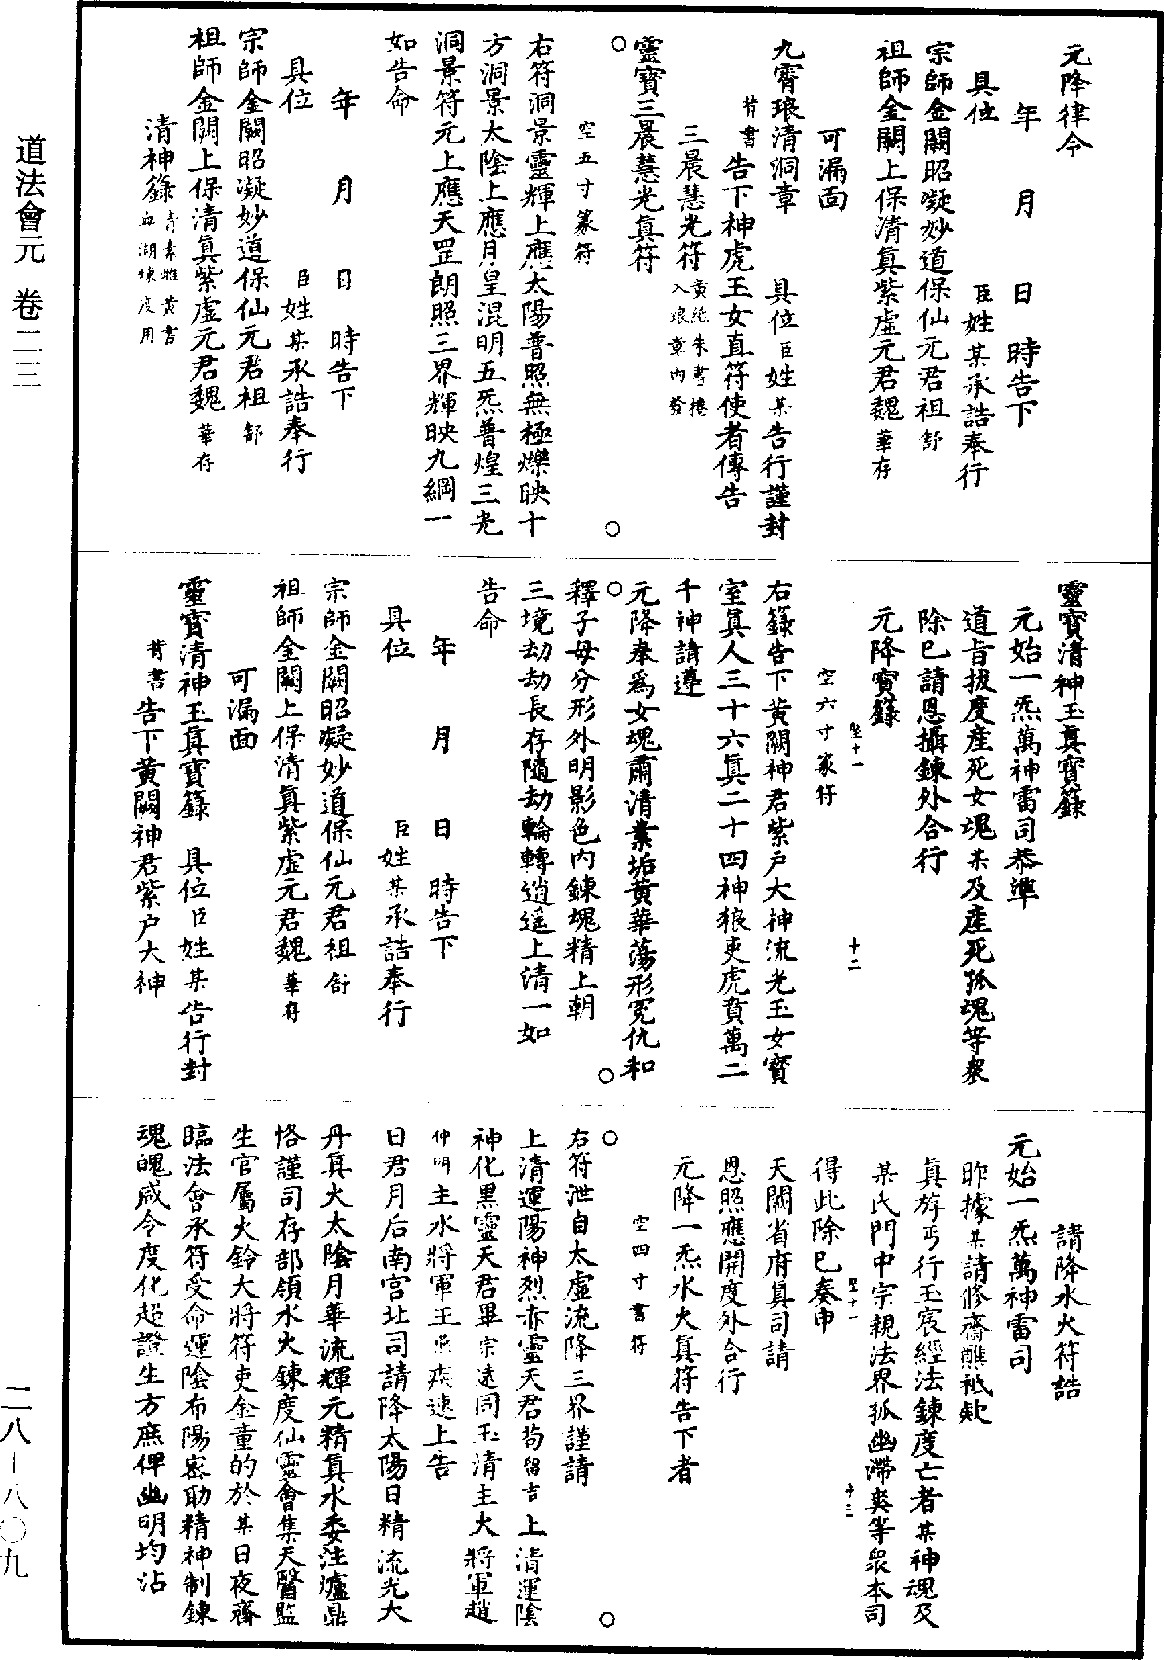 道法會元　卷二三
元降律令
年　月　日　時告下
具位　臣姓某承誥奉行
宗師金闕昭凝妙道保仙元君祖舒
祖師金闕上保清真紫虛元君魏華存
可漏面
九霄琅清洞章　具位臣姓某告行謹封
背書告下神虎玉女直符使者傳告
三晨慧光符黃紙朱書捲入琅章內發
靈寶三晨慧光真符
○　○
空五寸篆符
右符洞景靈輝上應太陽普照無極爍映十
方洞景太陰上應月皇混明五炁普煌三光
洞景符元上應天罡朗照三界輝映九綱一
如告命
年　月　日　時告下
具位　臣姓某承誥奉行
宗師金闕昭凝妙道保仙元君祖舒
祖師金闕上保清真紫虛元君魏華存
清神籙青素雌黃書血湖煉度用
靈寶清神玉真寶籙
元始一炁萬神雷司恭準
道旨拔度產死女魂某及產死孤魂等衆
除已請恩攝鍊外合行
元降寶籙
十二
空六寸篆符
右籙告下黃闕神君紫戶大神流光玉女寶
室真人三十六真二十四神狼吏虎賁萬二
千神請遵
元降奉爲女魂肅清業垢黃華蕩形冤仇和
○　○
釋子母分形外明影色內鍊魂精上朝
三境劫劫長存隨劫輪轉逍遙上清一如
告命
年　月　日　時告下
具位　臣姓某承誥奉行
宗師金闕昭凝妙道保仙元君祖舒
祖師金闕上保清真紫虛元君魏華存
可漏面
靈寶清神玉真寶籙　具位臣姓某告行封
背書告下黃闕神君紫戶大神
請降水火符誥
元始一炁萬神雷司
昨據某請修齋醮祗欵
真斿丐行玉宸經法鍊度亡者某神魂及
某氏門中宗親法界孤幽滯爽等衆本司
十三
得此除已奏申
天闕省府真司請
恩照應開度外合行
元降一炁水火真符告下者
空四寸書符
○　○
右符泄自太虛流降三界謹請
上清運陽神烈赤靈天君苟留吉上清運陰
神化黑靈天君畢宗遠同玉清主火將軍趙
仲明主水將軍王　疾速上告
日君月后南宮北司請降太陽日精流光大
丹真火太陰月華流輝元精真水委注爐鼎
恪謹司存部領水火鍊度仙靈會集天醫監
生官屬火鈴大將符吏金童的於某日夜齋
臨法會承符受命運陰布陽密助精神制鍊
魂魄咸令度化超證生方庶俾幽明均沾
二八－八○九